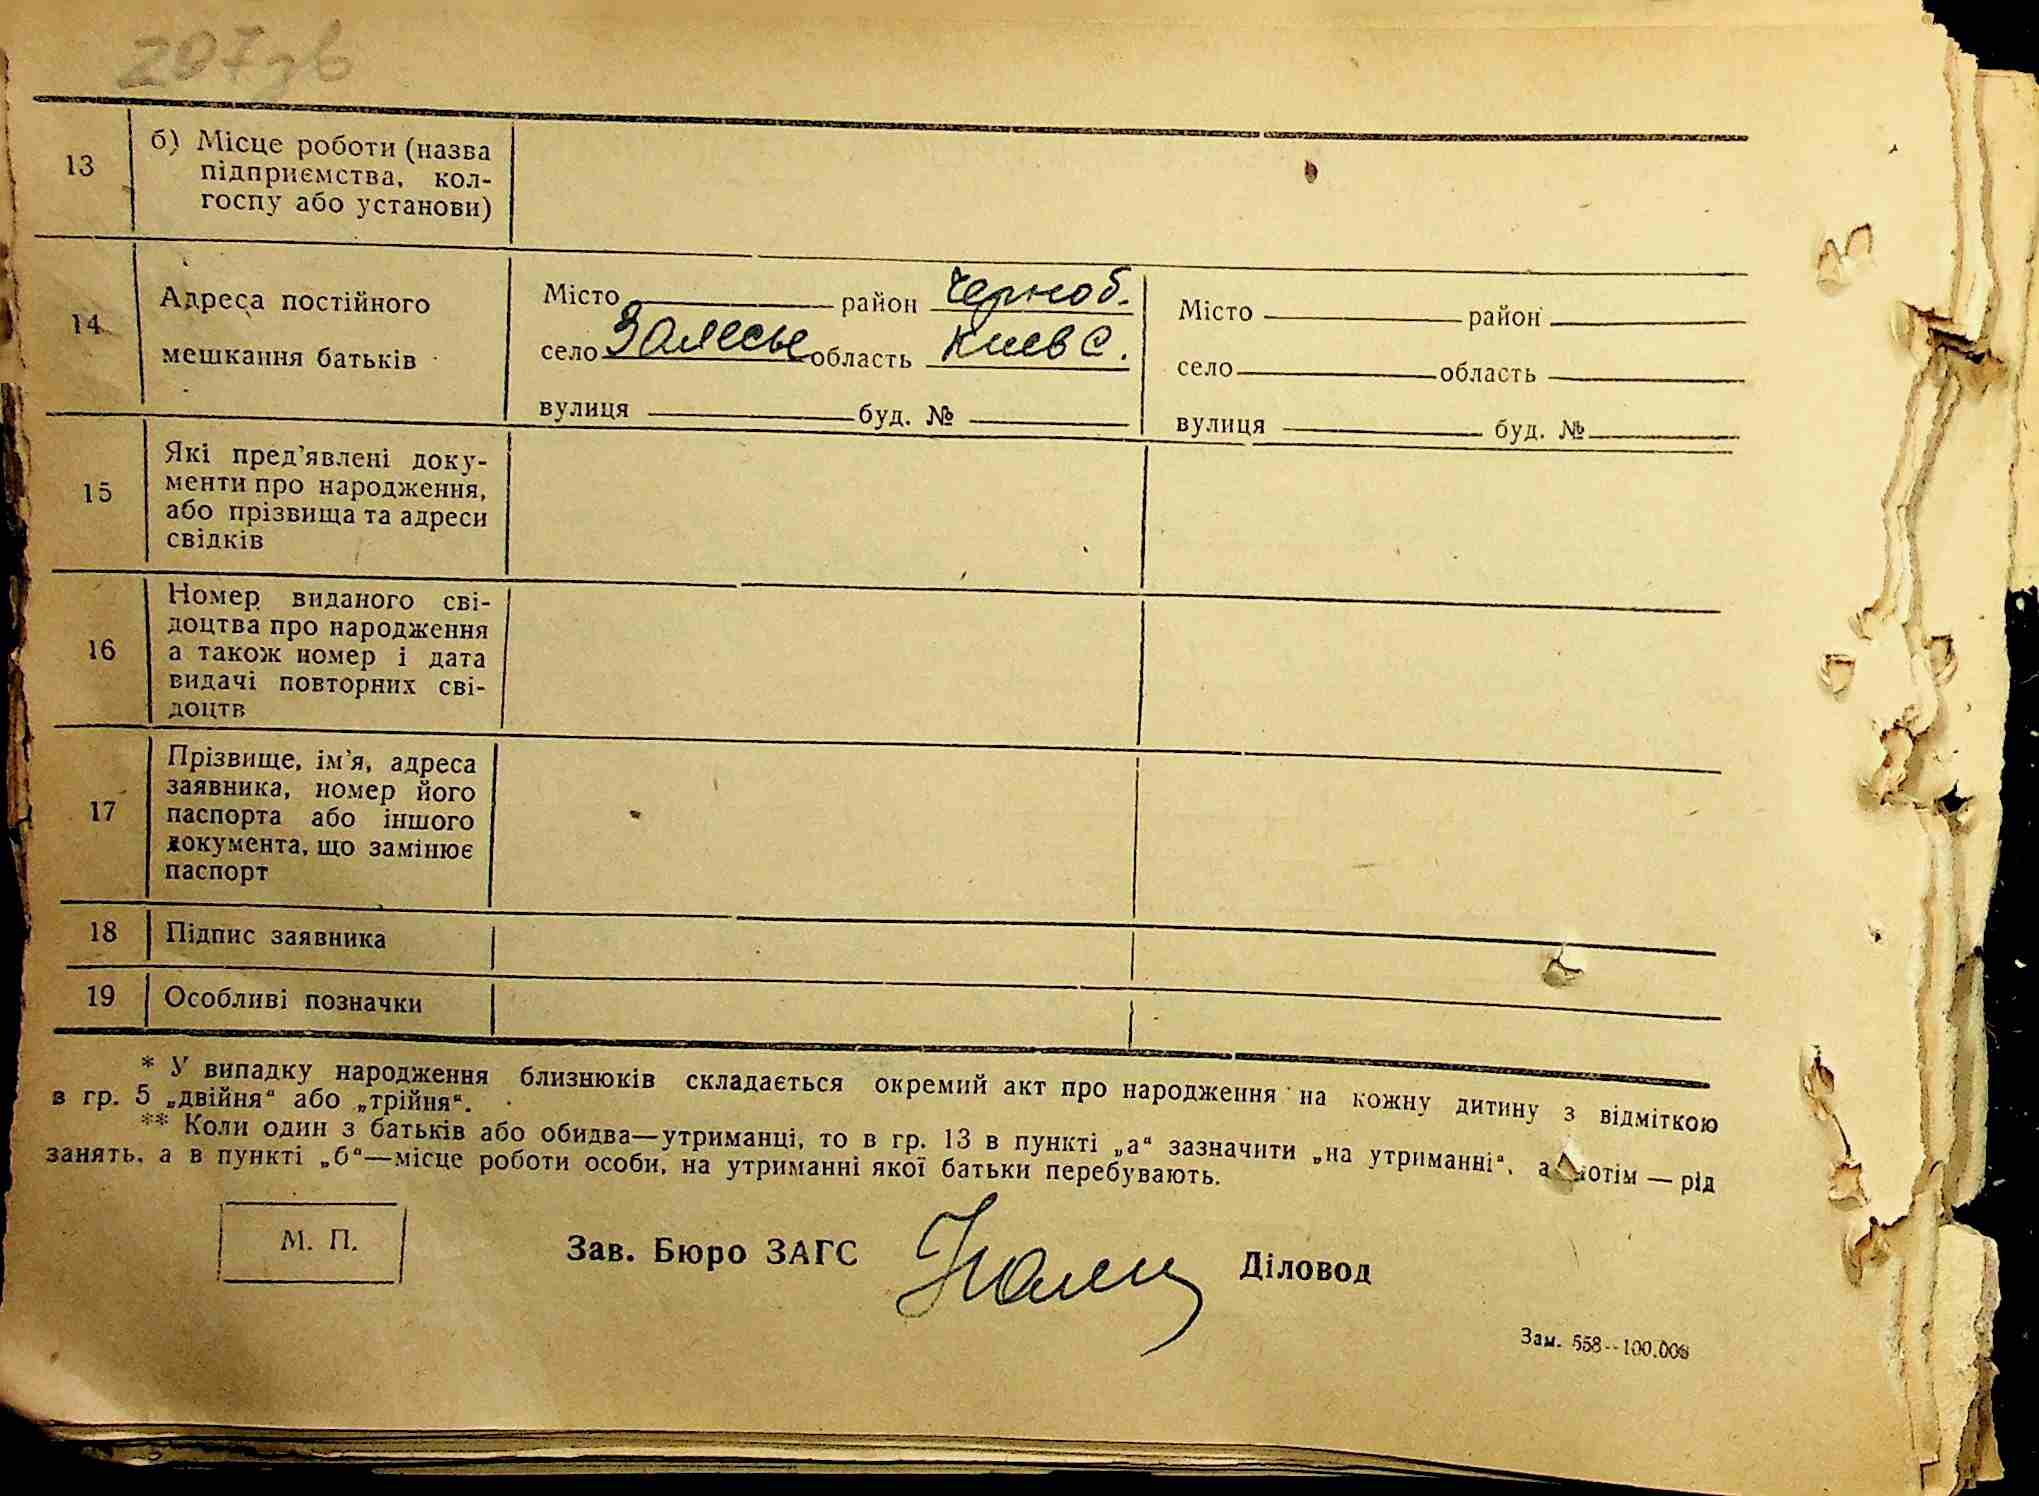 207зв
13
б) Місце роботи (назва
підприємства, кол-
госпу або установи)
14
Адреса постійного
мешкання батьків
Місто район Черноб.
село Залесье область Киевс.
вулиця буд. №
Місто район
село область
вулиця буд. №
15
Які пред’явлені доку-
менти про народження,
або прізвища та адреси
свідків
16
Номер виданого сві-
доцтва про народження
а також номер і дата
видачі повторних сві-
доцтв
17
Прізвище, ім’я, адреса
заявника, номер його
паспорта або іншого
документа, що замінює
паспорт
18
Підпис заявника
19
Особливі позначки
* У випадку народження близнюків складається окремий акт про народження на кожну дитину з відміткою
в гр. 5 „двійня“ або „трійня“.
** Коли один з батьків або обидва—утриманці, то в гр. 13 в пункті „а“ зазначити „на утриманні“, а потім — рід
занять, а в пункті „б“—місце роботи особи, на утриманні якої батьки перебувають.
М. П.
Зав. Бюро ЗАГС
Діловод
Зам. 558--100.000